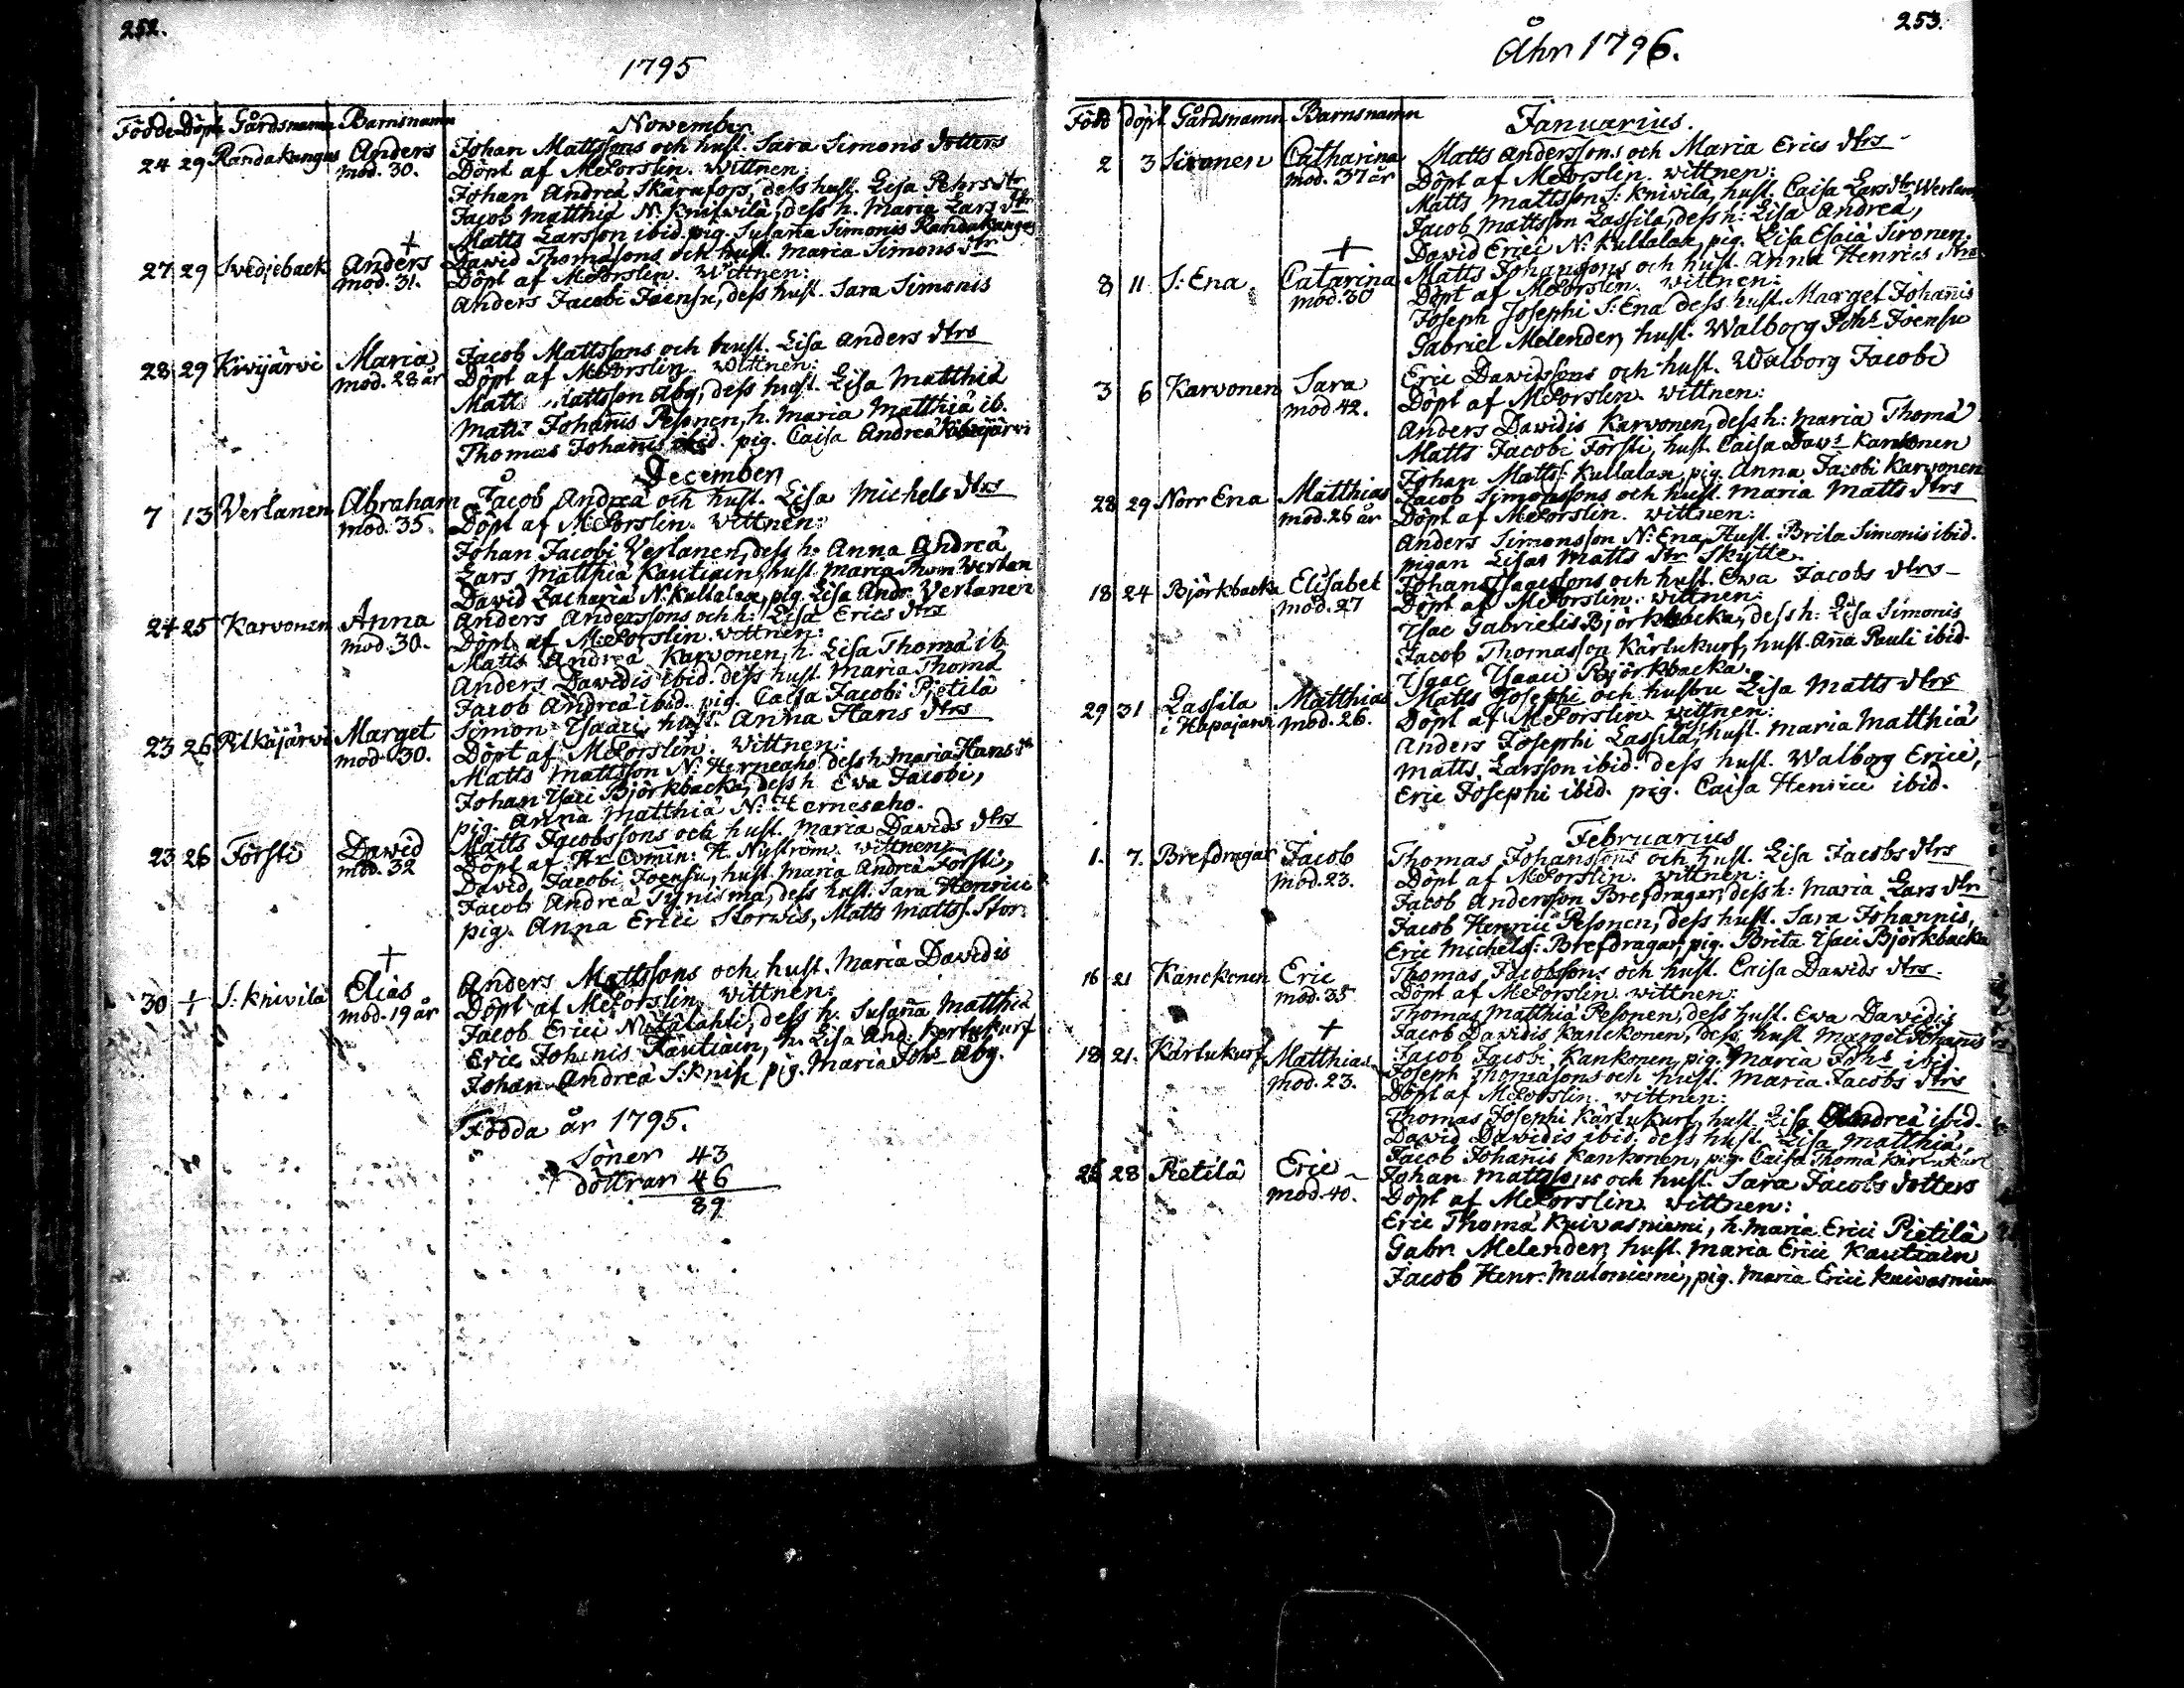 252.
1795
Födde Döpt Gårdsnamn Barnsnamn
November
24 29 Randakangas Anders mod. 30.
Johan Mattssons och hust. Sara Simons dotters
Döpt af McForslin. wittnen:
Johan Andreä Skarafors, dess hust. Lisa Pehrs dtr
Jacob Matthiä N. Knifvilä, dess h. Maria Lars dtr
Matts Larsson ibid. pig. Susana Simonis Randakangas
27 29 Svedjeback + Anders mod. 31.
Dawid Thomasons och hust. Maria Simons dtr
Döpt af McForslin. Wittnen:
Anders Jacobi Joensu, dess hust. Sara Simonis
28 29 Kiwijärvi Maria mod. 28 år
Jacob Mattssons och hust. Lisa Anders dtrs
Döpt af McForslin. Wittnen:
Matts Mattsson Abg, dess hust. Lisa Matthiä
Matts Johañis Pesonen, h. Maria Matthiä ib.
Thomas Johañis ibid. pig. Caisa Andreä Kiwijärvi
December
7 13 Verlanen Abraham mod. 35.
Jacob Andreä och hust. Lisa Michels dtrs
Döpt af McForslin. wittnen:
Johan Jacobi Verlanen, dess h. Anna Andreä
Lars Matthiä Kautiain, hust. Maria Thom. Werlan
David Zachariä N. Kullalax, pig. Lisa Andr. Verlanen
24 25 Karvonen Anna mod. 30.
Anders Anderssons och h: Lisa Erics dtrs
Döpt af McForslin. wittnen:
Matts Andreä Karvonen, h. Lisa Thomä ib.
Anders Dawidis ibid. dess hust. Maria Thomä
Jacob Andreä ibid. pig. Caisa Jacobi Pietilä
23 26 Pilkäjärvi Marget mod. 30.
Simon Isaaci, hust. Anna Hans dtrs
Döpt af McForslin. wittnen:
Matts Mattsson N. Herneaho dess h. Maria Hans dtr
Johan Isaci Björkbacka, dess h. Ewa Jacobi,
pig. Anna Matthiä N: Hernesaho.
23 26 Försti Dawid mod. 32
Matts Jacobssons och hust. Maria Dawids dtrs
Döpt af Hr Comin: H. Nyström. wittnen:
David Jacobi Joensu, hust. Maria Andreä Försti,
Jacob Andreä Tynismä, dess hust. Sara Henrici
pig. Anna Erici Storwis, Matts Matts. Stor.
30 + S: Knivilä + Elias mod. 19 år
Anders Mattssons och hust. Maria Dawidis
Döpt af McForslin. wittnen:
Jacob Erici Nitälahti, dess h. Susaña Matthiä
Eric Johanis Kautiain, h. Lisa And. Kertukurf
Johan Andreä S: Knif. pig. Maria Johs Abg.
Födda år 1795.
Söner 43
döttrar 46
89
253.
Åhr 1796.
Född döpt Gårdsnamn Barnsnamn
Januarius.
2 3 Sironen Catharina mod. 37 år
Matts Anderssons och Maria Erics dtrs
Döpt af McForslin. wittnen:
Matts Mattsson S: Knivilä, hust. Caisa Lars dtr Werlan
Jacob Mattsson Lassila, dess h: Lisa Andreä,
Dawid Erici N: Kullalax, pig. Lisa Esaiä Sironen.
8 11 S: Ena + Catarina mod. 30
Matts Johanssons och hust. Anna Henrics dtrs.
Döpt af McForslin. wittnen:
Joseph Josephi S: Ena dess hust. Marget Johañis
Gabriel Melender, hust. Walborg Johs Joensu
3 6 Karvonen Sara mod. 42.
Eric Dawidssons och hust. Walborg Jacobi
Döpt af McForslin. wittnen:
Anders Dawidis Karvonen, dess h: Maria Thomä
Matts Jacobi Försti, hust. Caisa Davs Karvonen
Johan Matts: Kullalax, pig. Anna Jacobi Karvonen
28 29 Norr Ena Matthias mod. 26 år
Jacob Simonssons och hust. Maria Matts dtrs
Döpt af McForslin. wittnen:
Anders Simonsson N: Ena, Hust. Brita Simonis ibid.
pigan Lisa Matts dtr Skytte.
18 24 Björkbacka Elisabet mod. 27
Johan Isacssons och hust. Ewa Jacobs dtrs
Döpt af McForslin. wittnen:
Isac Gabrielis Björkbacka, dess h: Lisa Simonis
Jacob Thomasson Kärtukurf, hust. Aña Pauli ibid.
Isaac Isaaci Björkbacka.
29 31 Lassila i Hapajärvi Matthias mod. 26.
Matts Josephi och hustru Lisa Matts dtrs
Döpt af McForslin. wittnen:
Anders Josephi Lassila, hust. Maria Matthiä
Matts Larsson ibid. dess hust. Walborg Erici,
Eric Josephi ibid. pig. Caisa Henrici ibid.
Februarius
1. 7. Brefdragar Jacob mod. 23.
Thomas Johanssons och hust. Lisa Jacobs dtrs
Döpt af McForslin. wittnen:
Jacob Andersson Brefdragar, dess h: Maria Lars dtr
Jacob Henrici Pesonen, dess hust. Sara Johannis,
Eric Michels: Brefdragar, pig. Brita Isaci Björkbacka
16 21 Kanckonen Eric mod. 35
Thomas Jacobssons och hust. Caisa Dawids dtrs.
Döpt af McForslin. wittnen:
Thomas Matthiä Pesonen, dess hust. Ewa Dawidis
Jacob Dawidis Kanckonen, dess hust. Marget Johañis
Jacob Jacobi Kankonen, pig. Maria Johs ibid
18 21. Kärtukurf + Matthias mod. 23.
Joseph Thomasons och hust. Maria Jacobs dtrs
Döpt af McForslin. wittnen:
Thomas Josephi Kärtukurf, hust. Lisa Andreä ibid.
Dawid Dawidis ibid. dess hust. Lisa Matthiä,
Jacob Johañis Kankonen, pig. Caisa Thomä Kärtukurf
28 Pietilä Eric mod. 40.
Johan Mattssons och hust. Sara Jacobs dotters
Döpt af McForslin. wittnen:
Eric Thomä Knivasniemi, h. Maria Erici Pietilä
Gabr. Melender, hust. Maria Erici Kautiain
Jacob Henr. Maloniemi, pig. Maria Erici Knivasniem